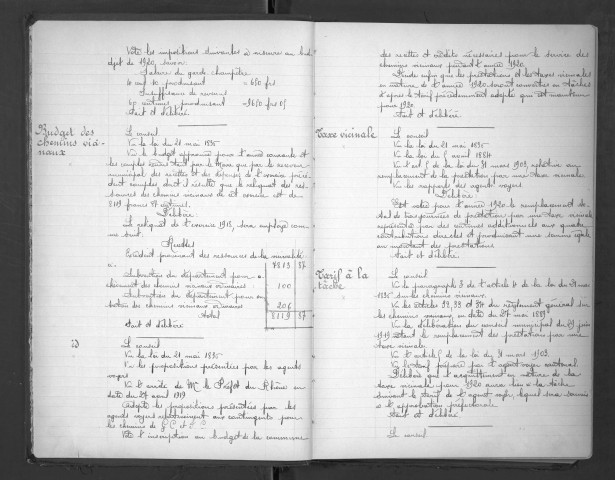 Vote les impositions suivantes à inscrire au bud-
get de 1920, savoir:
Salaire du garde champêtre
produisant = 650 frs
Insuffisance de revenus
60 centimes produisant
Fait et délibéré
Budget des
chemins vici-
naux
Le conseil
Vu la loi du 21 mai 1836
Vu le budget approuvé pour l'année courante et
les comptes rendus tant par le Maire que par le receveur
municipal des recettes et des dépenses de l'exercice précé-
dent comptes dont il résulte que le reliquat des res-
sources des chemins vicinaux de cet exercice est de
8119 francs 87 centimes.
Délibère
Le reliquat de l'exercice 1918, sera employé com-
me suit
Recettes
Excédent provenant des ressources de la vicinalité
7813 87
Subvention du département pour
chemins vicinaux ordinaires 100
Subvention du département pour
chemins vicinaux ordinaires 206
Total 8119 87
Fait et délibéré
Le conseil
Vu la loi du 21 mai 1836
Vu les propositions présentées par les agents
voyers
Vu l'arrêté de Mr le Préfet du Rhône en
date du 27 août 1919
Adopte les propositions présentées par les
agents voyers relativement aux contingents pour
les chemins de G.C. et I.C.
Vote l'inscription au budget de la commune
des recettes et crédits nécessaires pour le service des
chemins vicinaux pendant l'année 1920.
Décide enfin que les prestations et les taxes vicinales
en nature de l'année 1920 seront converties en tâches
d'après le tarif précédemment adopté qui est maintenu
pour 1920.
Fait et délibéré.
Taxe vicinale
Le conseil
Vu la loi du 21 mai 1836
Vu la loi du 5 avril 1884
Vu l'art 5 de la loi du 31 mars 1903, relative au
remplacement de la prestation par une taxe vicinale
Vu les rapports des agents voyers
Délibère
Est voté pour l'année 1920 le remplacement to-
tal des journées de prestations par une taxe vicinale
représentée par des centimes additionnels aux quatre
contributions directes et produisant une somme égale
au montant des prestations
Fait et délibéré.
Tarif à la
tâche
Le conseil
Vu le paragraphe 3 de l'article 4 de la loi du 21 mai
1836 sur les chemins vicinaux.
Vu les articles 32, 33 et 34 du règlement général sur
les chemins vicinaux, en date du 27 mai 1887
Vu la délibération du conseil municipal du juin
1919 votant le remplacement des prestations par une
taxe vicinale
Vu l'article 5 de la loi du 31 mars 1903.
Vu le tarif préparé par l'agent voyer cantonal.
Délibère que l'acquittement en nature de la
taxe vicinale pour 1920 aura lieu à la tâche
suivant le tarif de l'agent voyer, lequel sera soumis
à l'approbation préfectorale
Fait et délibéré
Le conseil